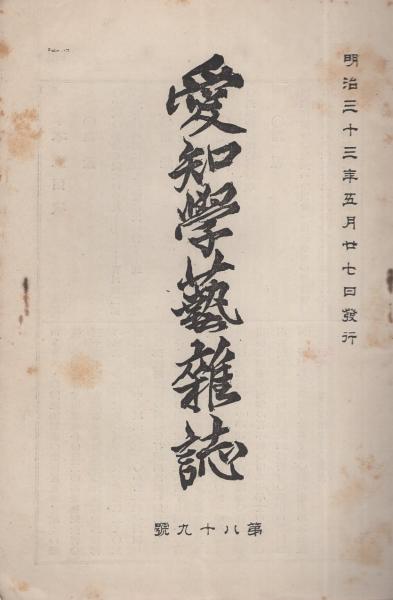 明治三十三年五月廿七日發行
愛知學藝雜誌
第八十九號